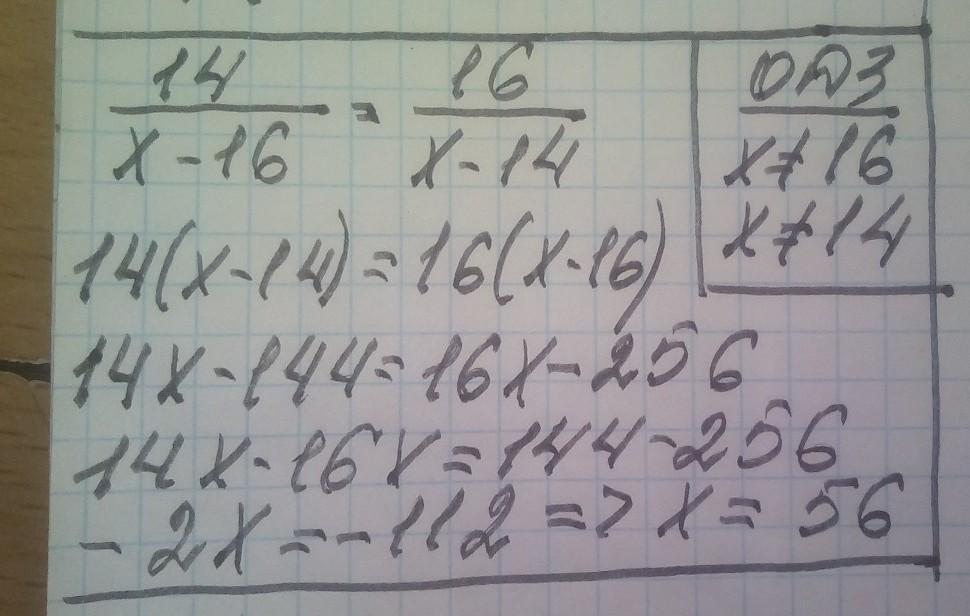 14/(x-16) = 16/(x-14)
ОДЗ
x≠16
x≠14
14(x-14)=16(x-16)
14x-144=16x-256
14x-16x=144-256
-2x=-112 => x=56